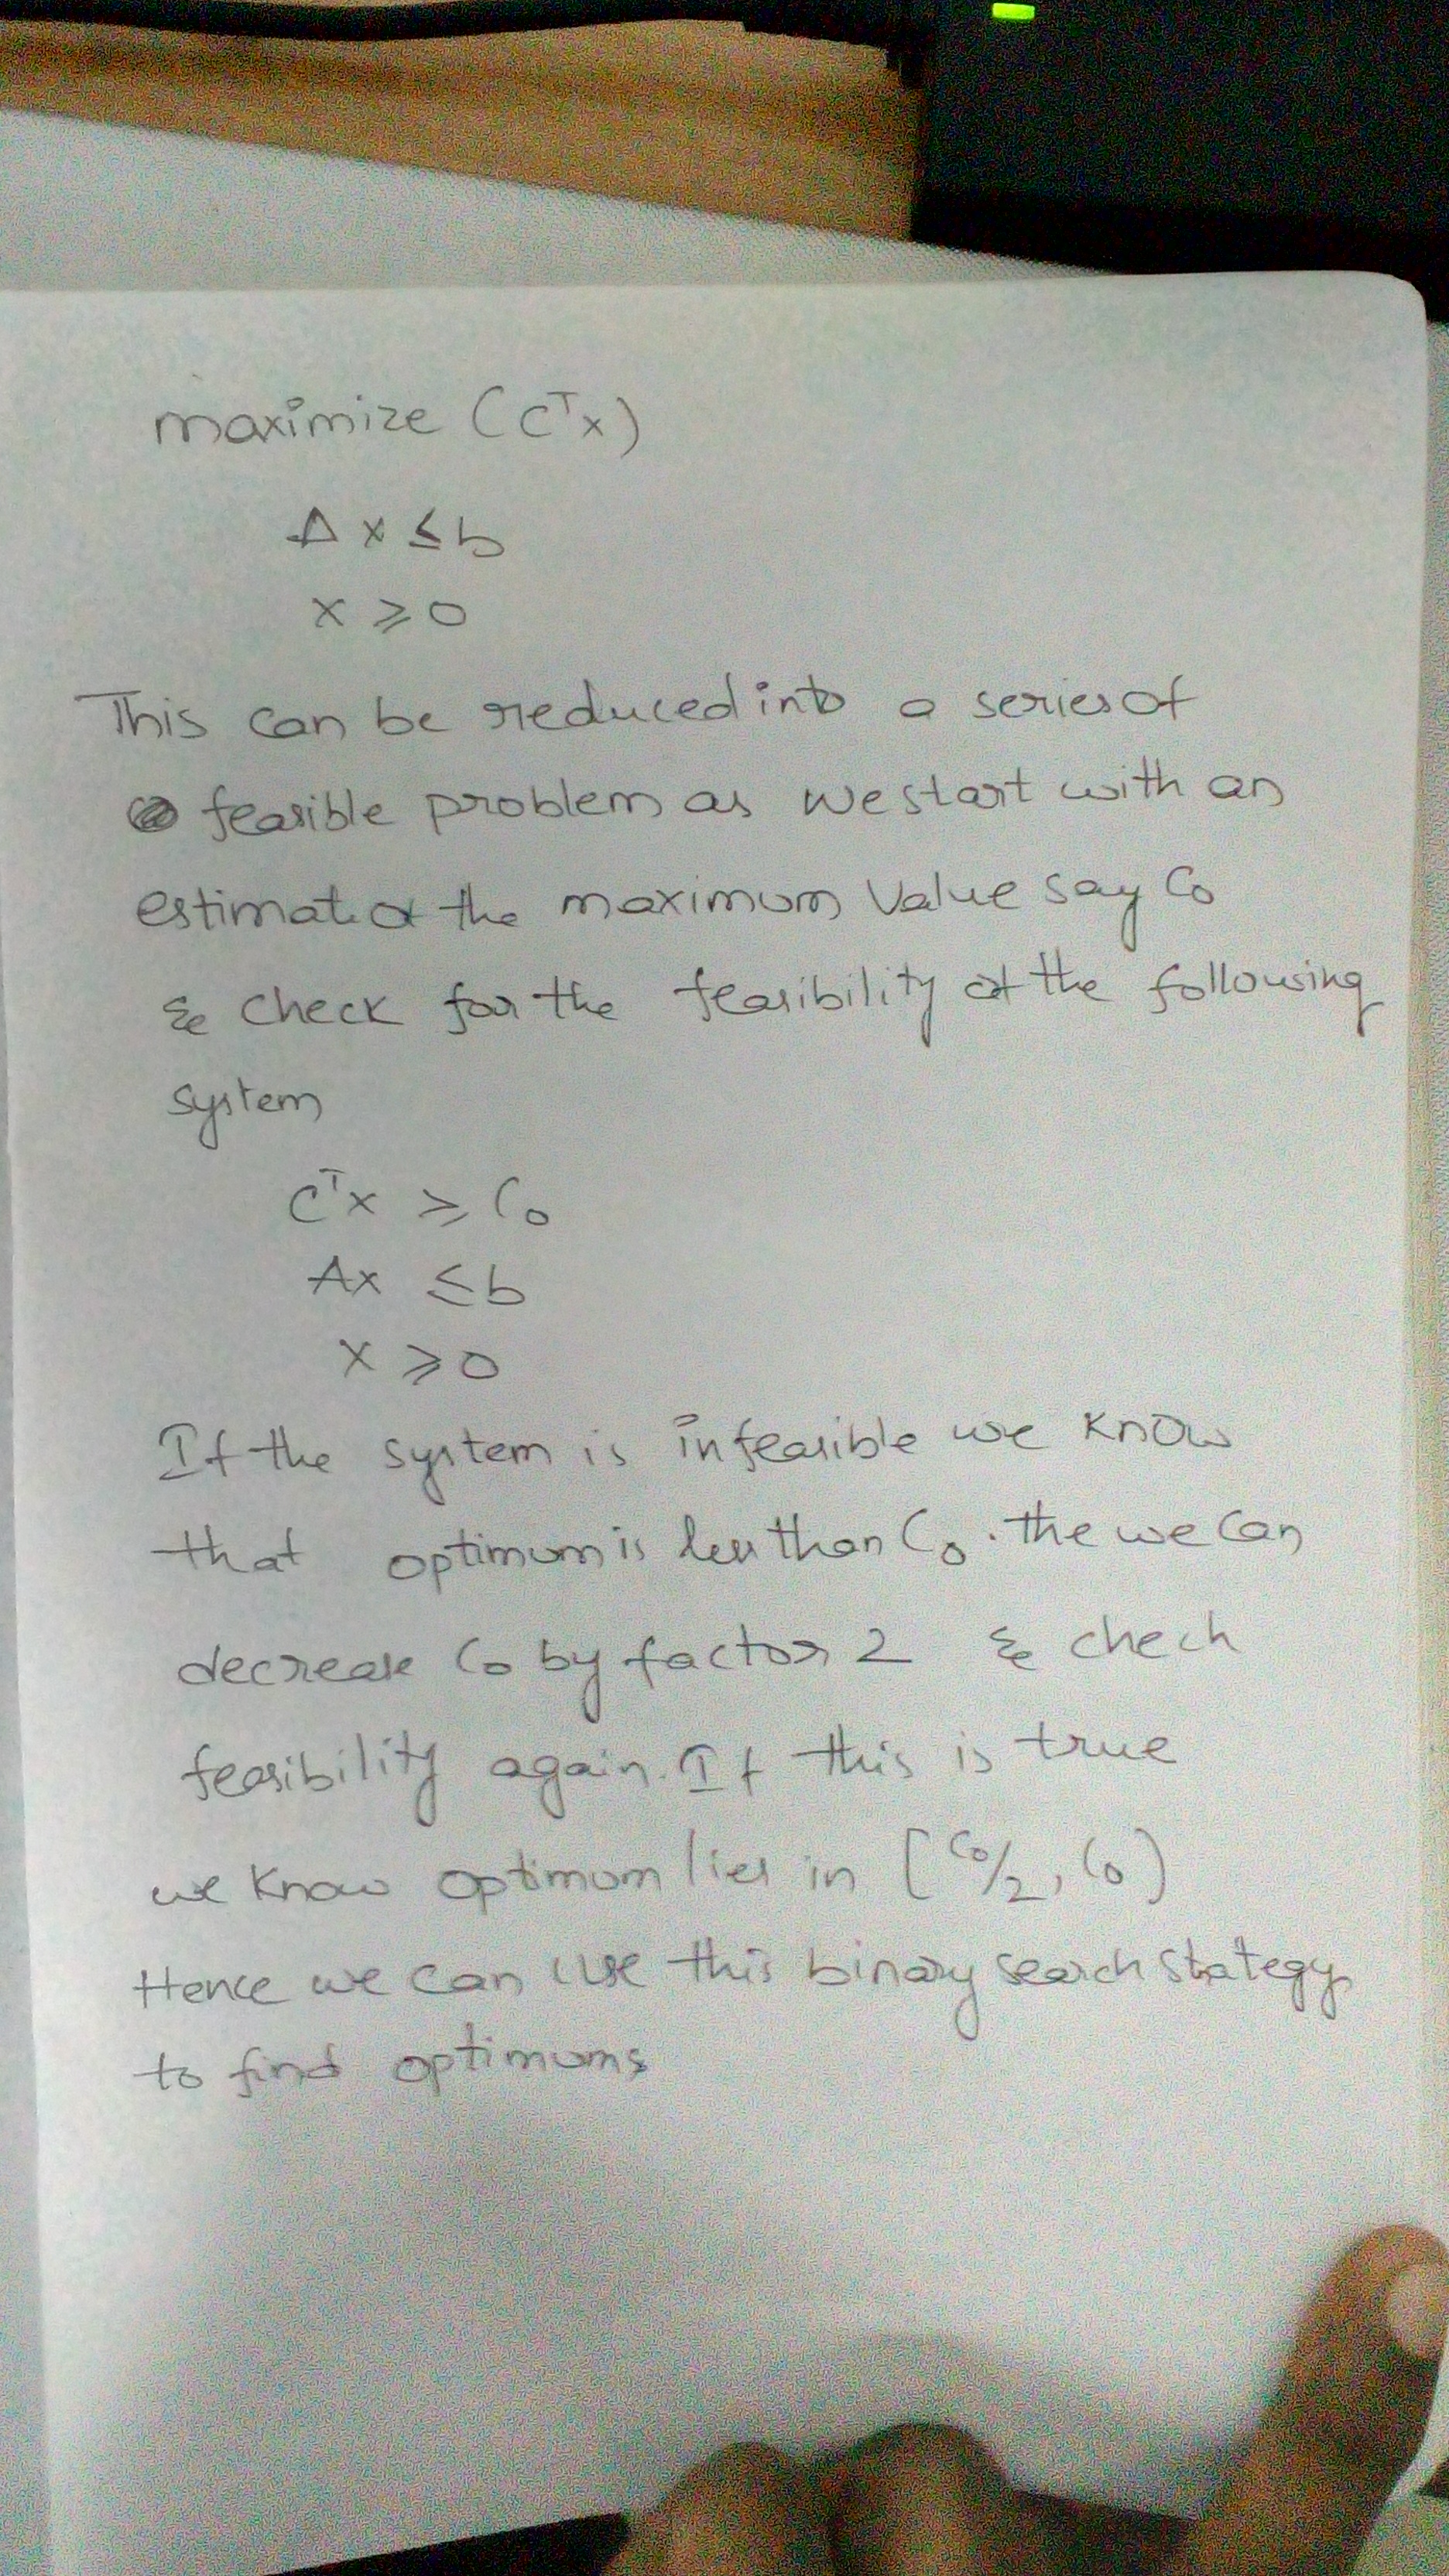 maximize (Cᵀx)
A x ≤ b
x ≥ 0
This can be reduced into a series of
feasible problem as we start with an
estimate of the maximum value say C₀
& check for the feasibility of the following
system
Cᵀx ≥ C₀
Ax ≤ b
x ≥ 0
If the system is infeasible we know
that optimum is less than C₀. the we can
decrease C₀ by factor 2 & chech
feasibility again. If this is true
we know optimum lies in [C₀/2, C₀)
Hence we can use this binary search stategy
to find optimums